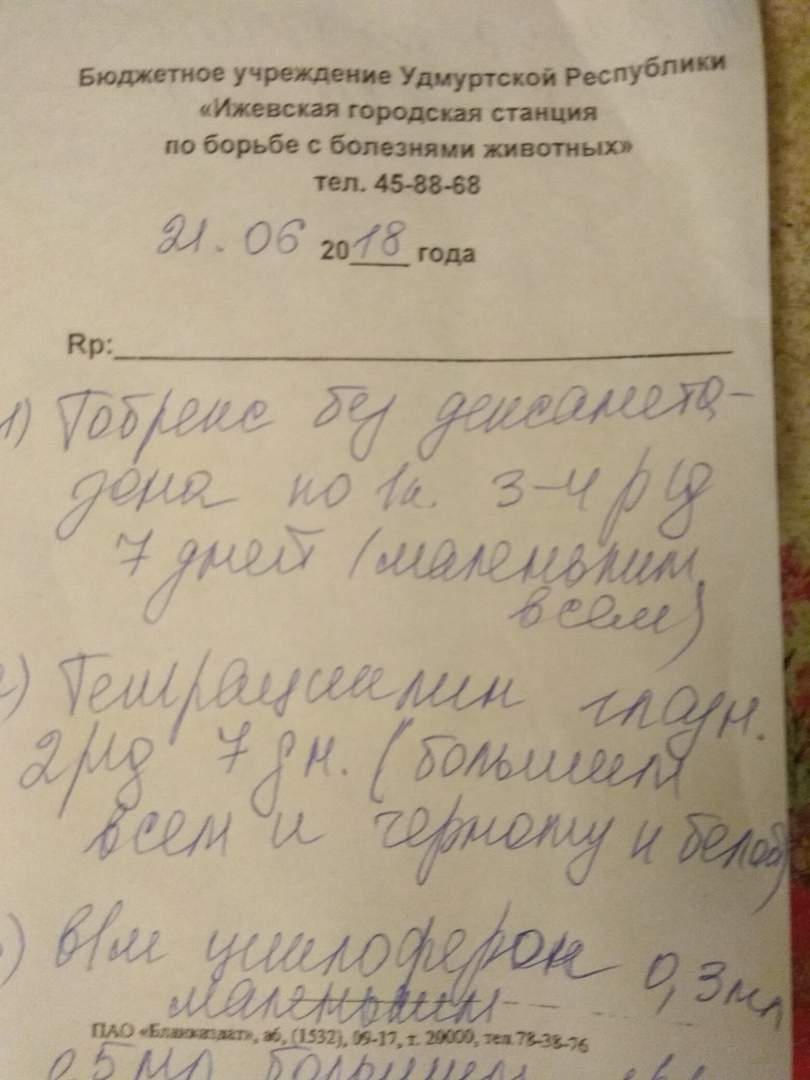 Бюджетное учреждение Удмуртской Республики
«Ижевская городская станция
по борьбе с болезнями животных»
тел. 45-88-68
21.06 2018 года
Rp:
1) Тобрекс без дексамета-
зона по 1к. 3-4 р/д
7 дней (маленьким
всем)
2) Тетрациклин глазн.
2р/д 7 дн. (большим
всем и черному и белой)
3) в/м циклоферон 0,3 мл
маленьким
ПАО «Бланкиздат», аб, (1532), 09-17, т. 20000, тел.78-38-76
0,5 мл большим